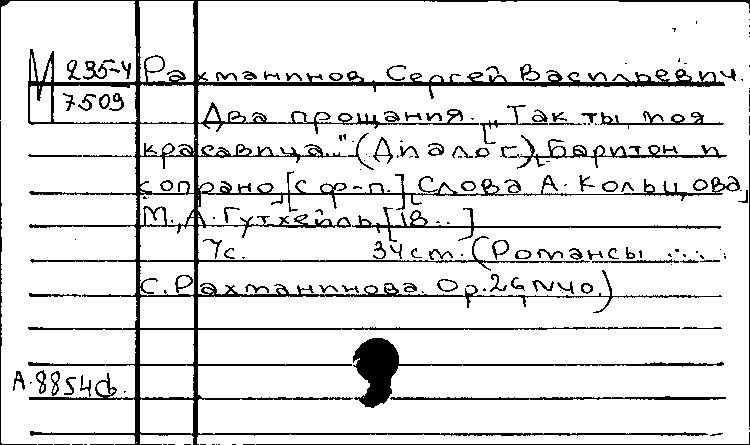 М 235-4 Рахманинов, Сергей Васильевич.
7509
Два прощания. [„Так ты, моя
красавица..." (Диалог)], Баритон и
сопрано [с ф-п.] [Слова А. Кольцова]
М., А. Гутхейль, [18..]
7с. 34 cm. (Романсы ...
С. Рахманинова. Op. 26, N 40.)
А. 8854 ф.